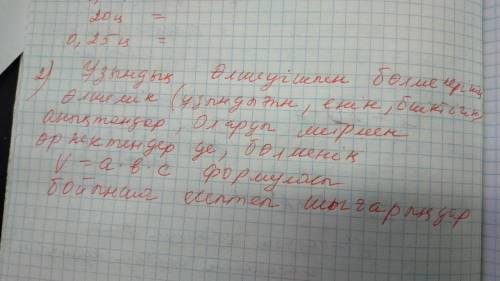 20ц =
0,25ц =
2) Ұзындық өлшеуішпен бөлменерің
өлшемін (ұзындығын, енін, биіктігін)
анықтаңдар, оларды метрмен
өрнектеңдер де, бөлменің
V = а·в·с формуласы
бойынша есептеп шығарыңдар